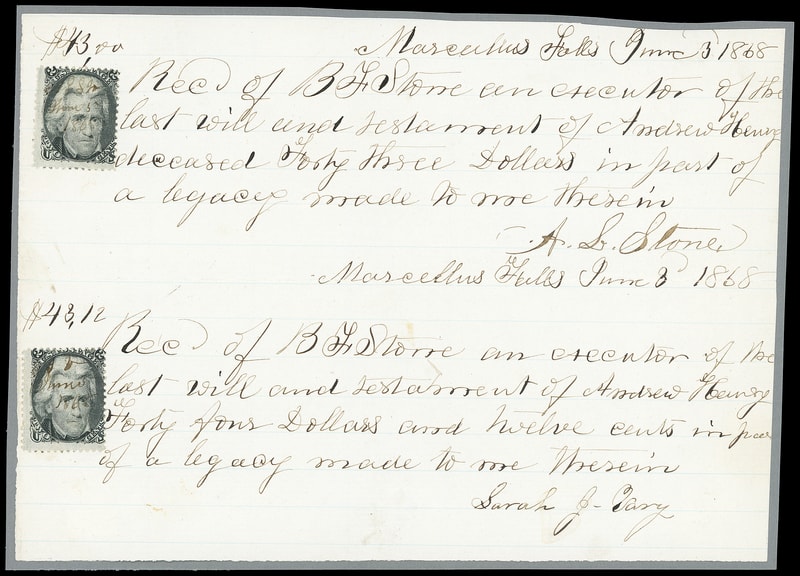 $43,00
Marcellus Falls June 3d 1868
Recd of B F Stone an executor of the
last will and testament of Andrew Henry
deceased Forty three Dollars in part of
a legacy made to me therein
A. L. Stone
Marcellus Falls June 3d 1868
$43,12
Recd of B F Stone an executor of the
last will and testament of Andrew Henry
Forty four Dollars and twelve cents in par
of a legacy made to me therein
Sarah J